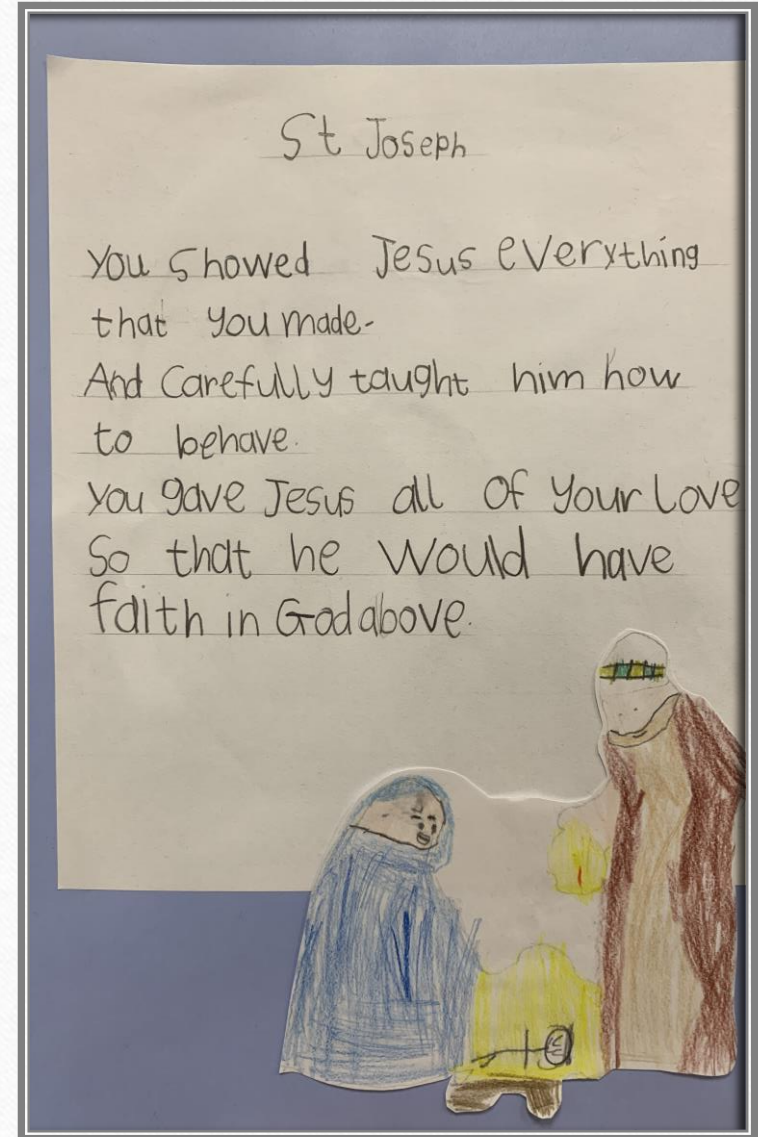 St Joseph
You showed Jesus everything
that you made-
And Carefully taught him how
to behave.
You gave Jesus all of your Love
So that he would have
faith in God above.